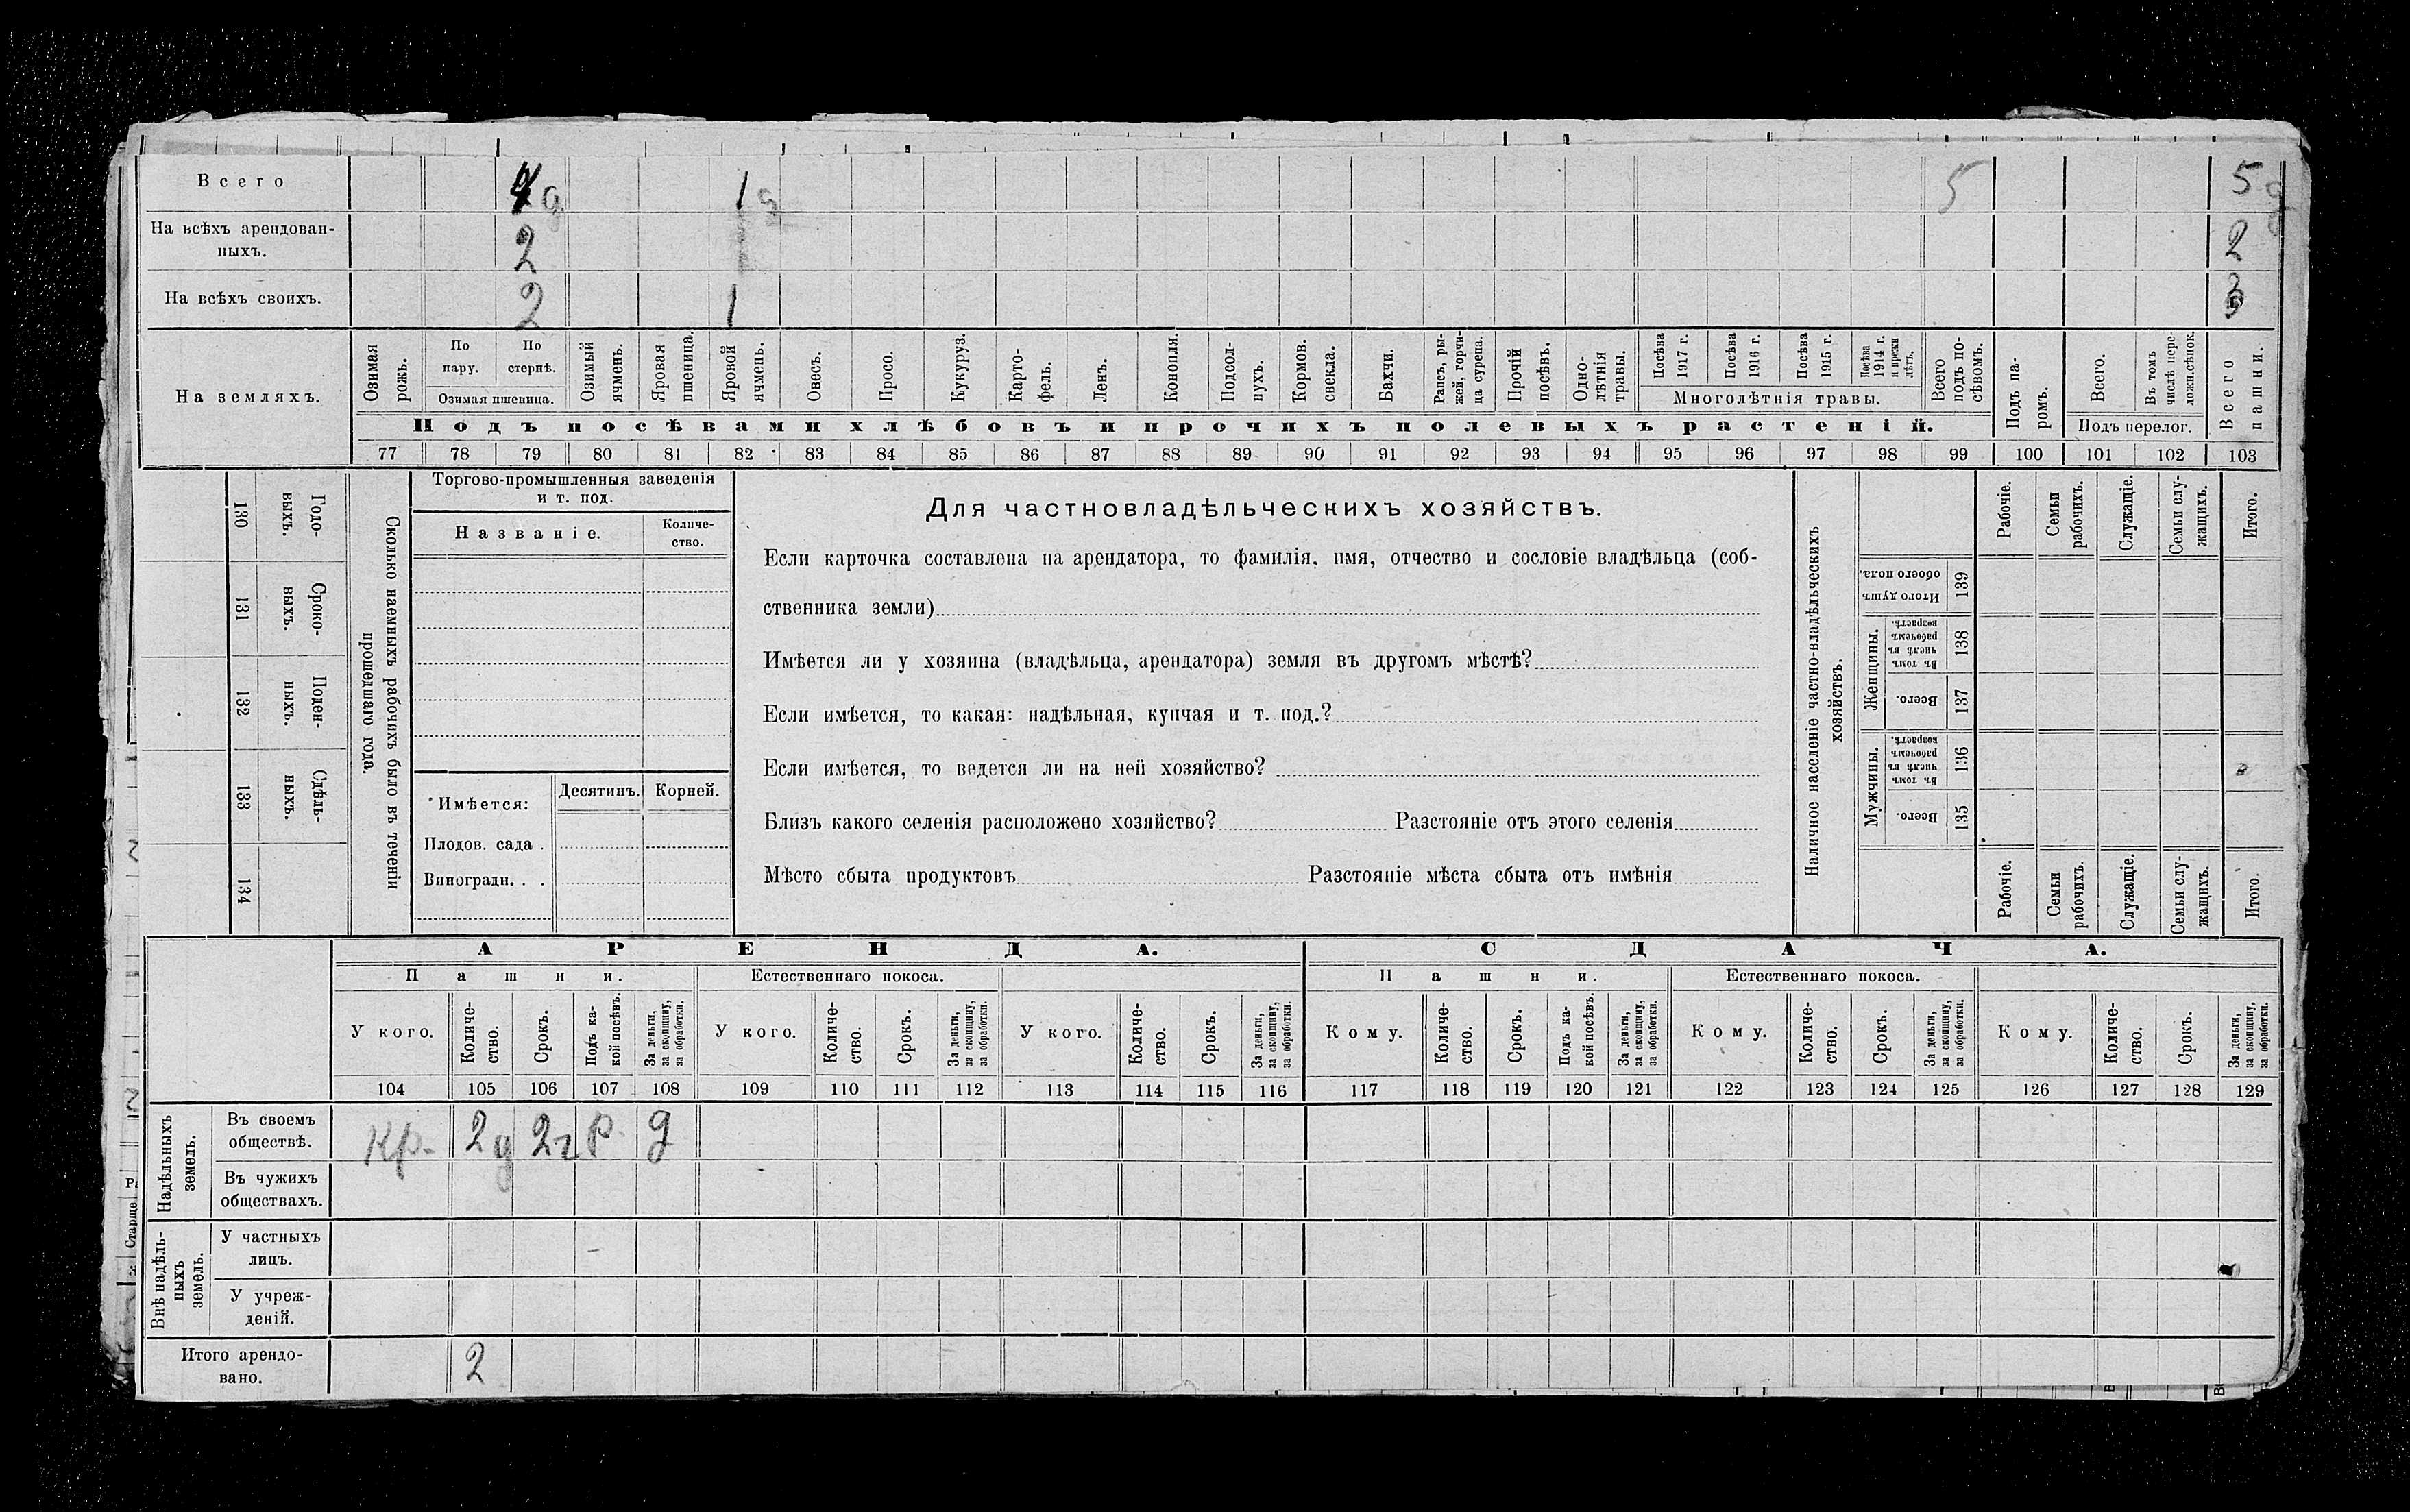 Всего 4 д 1 д 5 5 д
На всѣхъ арендован-
ныхъ. 2 2
На всѣхъ своихъ. 2 1 3
На земляхъ.
Озимая рожь.
По пару.
По стернѣ.
Озимая пшеница.
Озимый ячмень.
Яровая пшеница.
Яровой ячмень.
Овесъ.
Просо.
Кукуруз.
Карто-
фель.
Ленъ.
Конопля.
Подсол-
нухъ.
Кормов.
свекла.
Бахчи.
Рапсъ, ры-
жей, горчи-
ца сурепа.
Прочій
посѣвъ.
Одно-
лѣтнія
травы.
Посѣва
1917 г.
Посѣва
1916 г.
Посѣва
1915 г.
Посѣва
1914 г.
и прежн
лѣтъ.
Многолѣтнія травы.
Всего
подъ по-
сѣвомъ.
Подъ па-
ромъ.
Всего.
Въ томъ
числѣ пере-
ложн.сѣнок.
Подъ перелог.
Всего
пашни.
Подъ посѣвами хлѣбовъ и прочихъ полевыхъ растеній.
77 78 79 80 81 82 83 84 85 86 87 88 89 90 91 92 93 94 95 96 97 98 99 100 101 102 103
130 Годо-
выхъ.
131 Сроко-
выхъ.
132 Поден-
ныхъ.
133 Сдѣль-
ныхъ.
134
Сколько наемныхъ рабочихъ было въ теченіи
прошедшаго года.
Торгово-промышленныя заведенія
и т. под.
Названіе.
Количе-
ство.
Имѣется:
Десятинъ. Корней.
Плодов. сада .
Виноградн. . .
Для частновладѣльческихъ хозяйствъ.
Если карточка составлена на арендатора, то фамилія, имя, отчество и сословіе владѣльца (соб-
ственника земли)
Имѣется ли у хозяина (владѣльца, арендатора) земля въ другомъ мѣстѣ?
Если имѣется, то какая: надѣльная, купчая и т. под.?
Если имѣется, то ведется ли на ней хозяйство?
Близъ какого селенія расположено хозяйство? Разстояніе отъ этого селенія
Мѣсто сбыта продуктовъ Разстояніе мѣста сбыта отъ имѣнія
Наличное населеніе частно-владѣльческихъ
хозяйствъ.
Рабочіе.
Семьи
рабочихъ.
Служащіе.
Семьи слу-
жащихъ.
Итого.
Итого душъ
обоего пола.
139
Женщины.
Въ томъ
числѣ въ
рабочемъ
возрастѣ.
138
Всего.
137
Мужчины.
Въ томъ
числѣ въ
рабочемъ
возрастѣ.
136
Всего.
135
Рабочіе.
Семьи
рабочихъ.
Служащіе.
Семьи слу-
жащихъ.
Итого.
АРЕНДА. СДАЧА.
Пашни. Естественнаго покоса. Пашни. Естественнаго покоса.
У кого.
Количе-
ство.
Срокъ.
Подъ ка-
кой посѣвъ.
За деньги,
за скопщину,
за обработки.
У кого.
Количе-
ство.
Срокъ.
За деньги,
за скопщину,
за обработки.
У кого.
Количе-
ство.
Срокъ.
За деньги,
за скопщину,
за обработки.
Кому.
Количе-
ство.
Срокъ.
Подъ ка-
кой посѣвъ.
За деньги,
за скопщину,
за обработки.
Кому.
Количе-
ство.
Срокъ.
За деньги,
за скопщину,
за обработки.
Кому.
Количе-
ство.
Срокъ.
За деньги,
за скопщину,
за обработки.
104 105 106 107 108 109 110 111 112 113 114 115 116 117 118 119 120 121 122 123 124 125 126 127 128 129
Надѣльныхъ
земель.
Въ своемъ
обществѣ. Кр. 2 д 2 г р. д
Въ чужихъ
обществахъ.
Внѣ надѣль-
ныхъ
земель.
У частныхъ
лицъ.
У учреж-
деній.
Итого арендо-
вано. 2
Старше